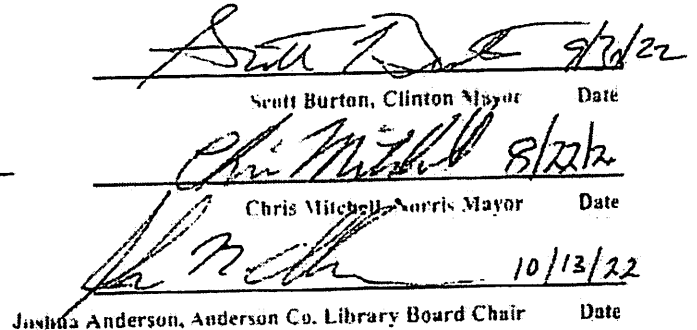 9/30/22
Scott Burton, Clinton Mayor Date
Chris Mitchell 8/22/2
Chris Mitchell, Norris Mayor Date
10/13/22
Joshua Anderson, Anderson Co. Library Board Chair Date